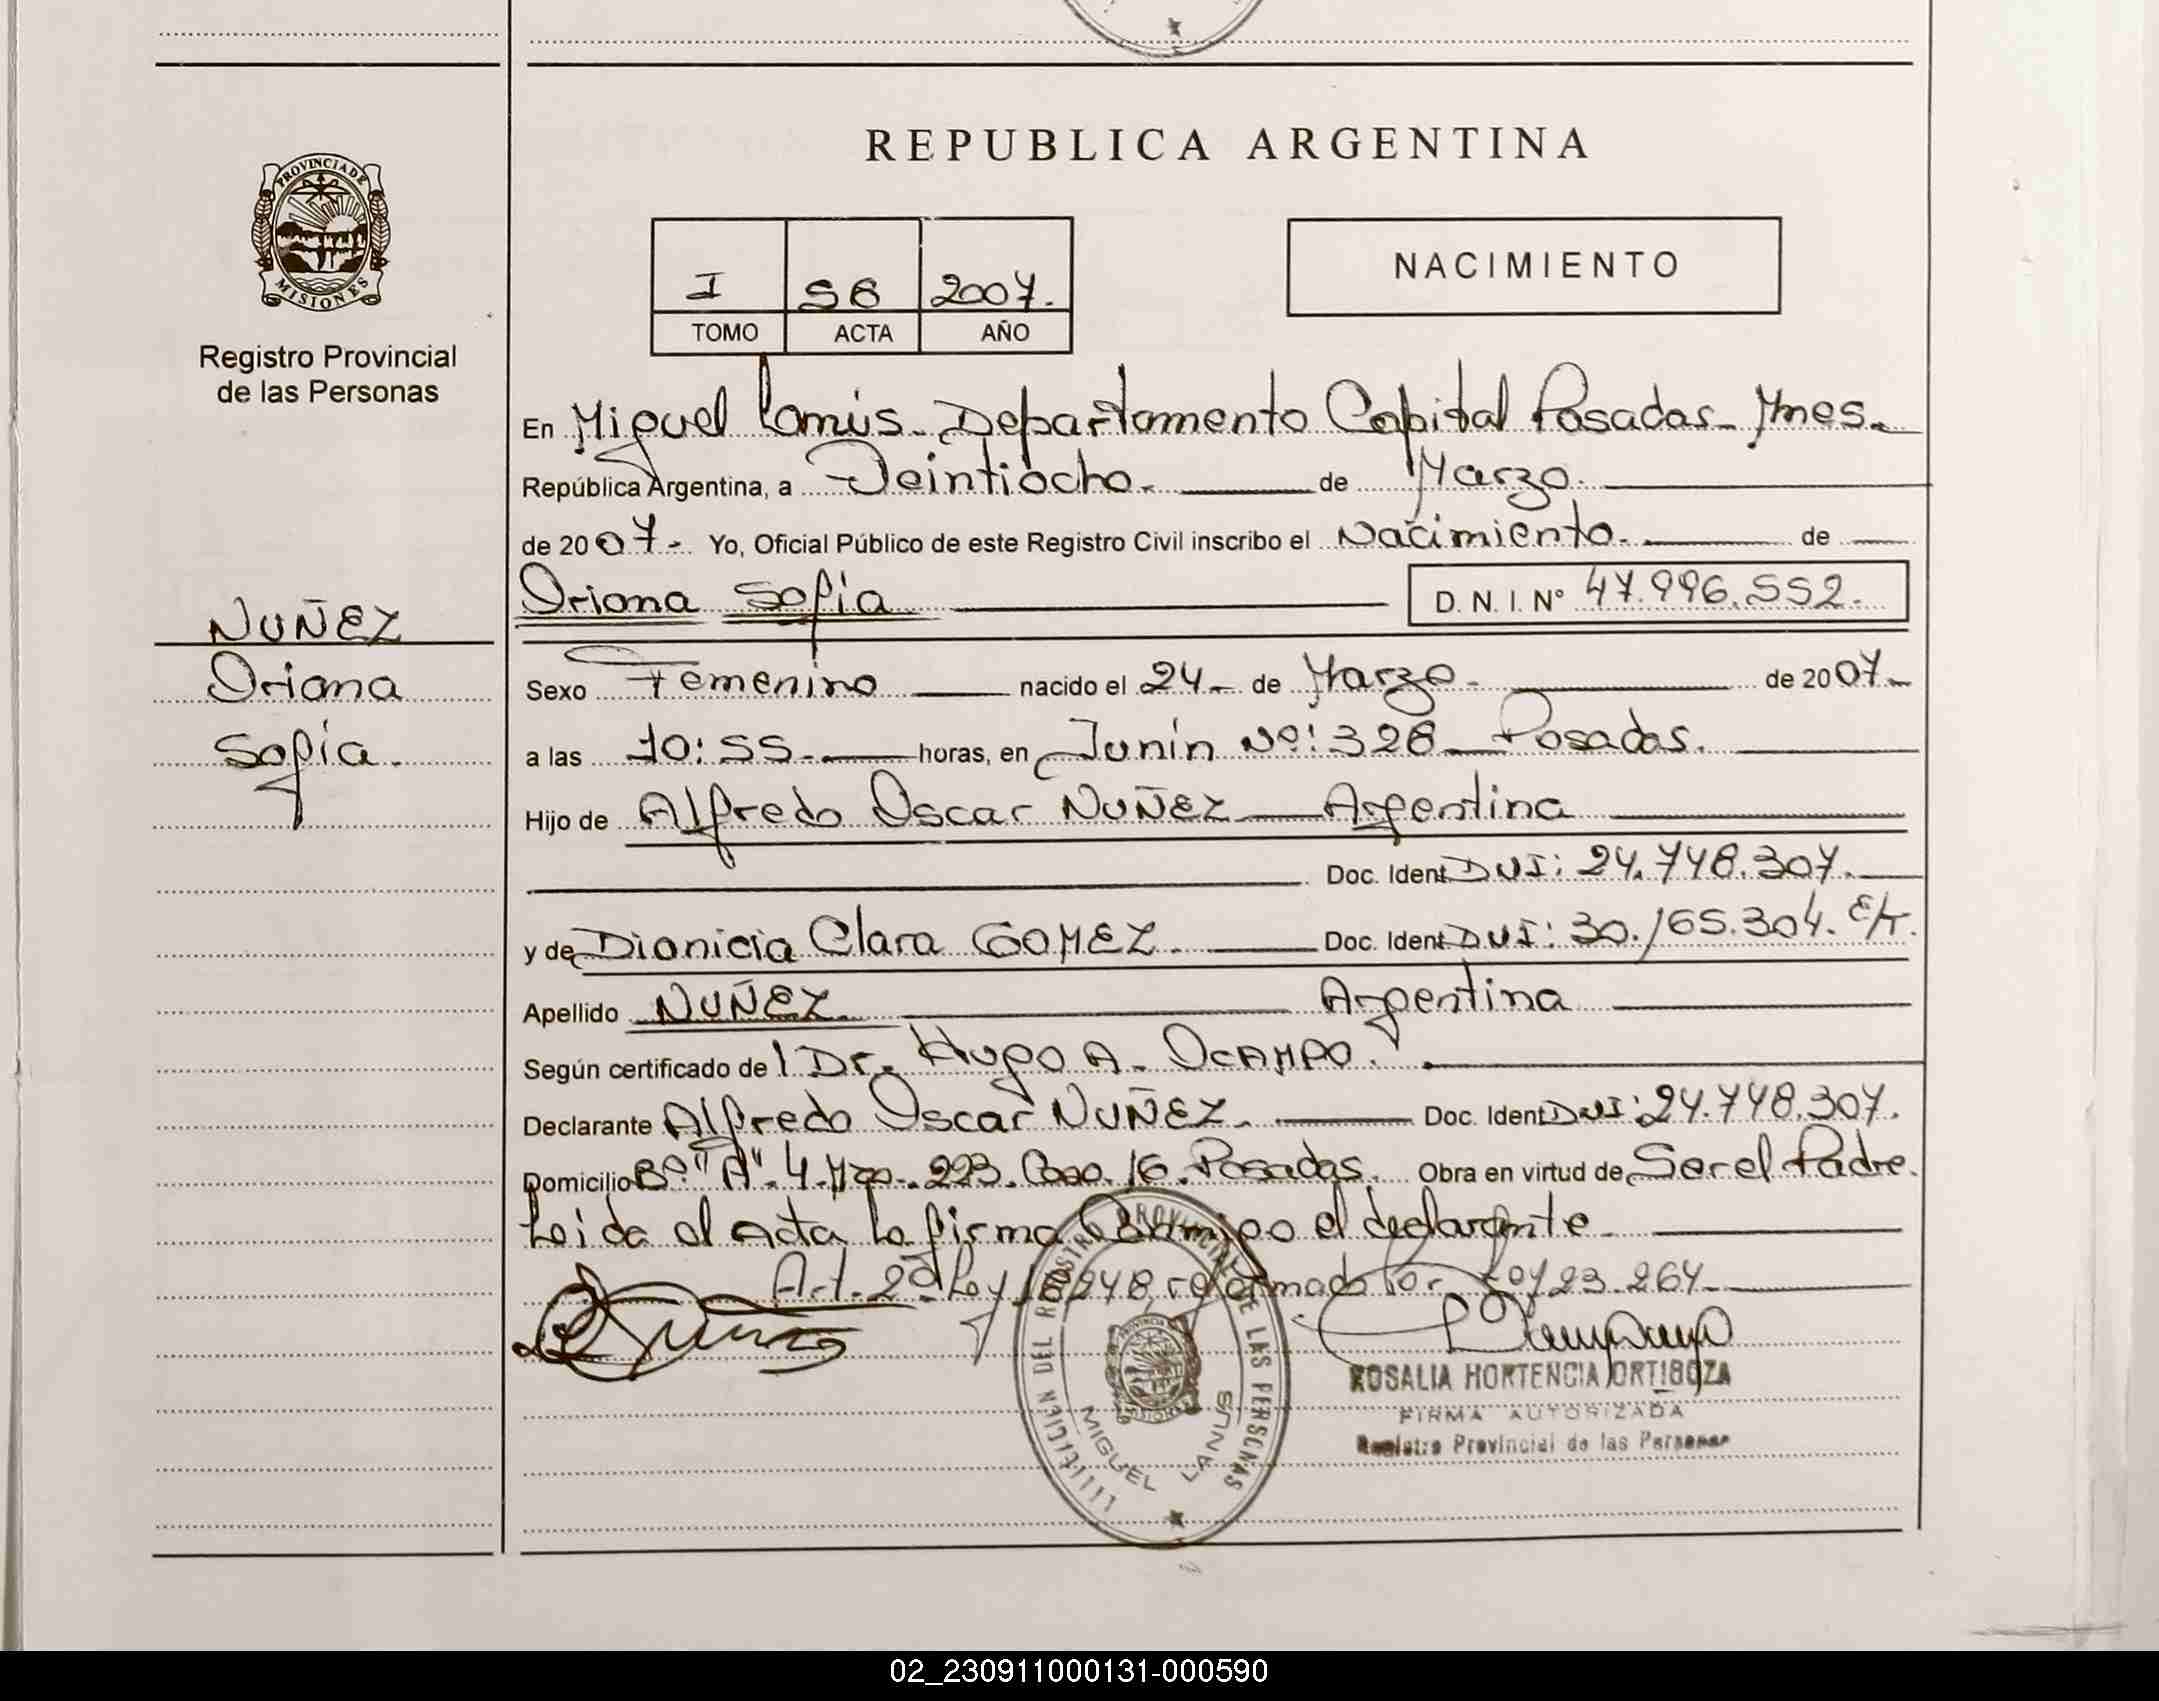 REPUBLICA ARGENTINA
PROVINCIA DE
MISIONES
Registro Provincial
de las Personas
NACIMIENTO
I 56 2007.
TOMO ACTA AÑO
En Miguel Lanús. Departamento Capital Posadas - Mnes.
República Argentina, a Veintiocho. de Marzo.
de 2007. Yo, Oficial Público de este Registro Civil inscribo el Nacimiento. de
Oriana Sofía D. N. I. Nº 47.996.552.
NUÑEZ
Oriana
Sofía.
Sexo Femenino nacido el 24 de Marzo de 2007
a las 10:55. horas, en Junín Nº: 328 Posadas.
Hijo de Alfredo Oscar NUÑEZ Argentina
Doc. Ident DNI: 24.748.307.
y de Dionicia Clara GOMEZ. Doc. Ident DNI: 30.165.304. E/T.
Apellido NUÑEZ. Argentina
Según certificado del Dr. Hugo A. OCAMPO.
Declarante Alfredo Oscar NUÑEZ. Doc. Ident DNI: 24.748.307.
Domicilio Bº "A" 4. Mza. 223. Casa. 16. Posadas. Obra en virtud de Ser el Padre.
Leida el Acta la firma Conmigo el declarante
Art. 2º Ley 18248 reformado Por Ley 23.264
ROSALIA HORTENCIA ORTIGOZA
FIRMA AUTORIZADA
Registro Provincial de las Personas
DEL REGISTRO PROVINCIAL DE LAS PERSONAS
MIGUEL LANUS
02_230911000131-000590